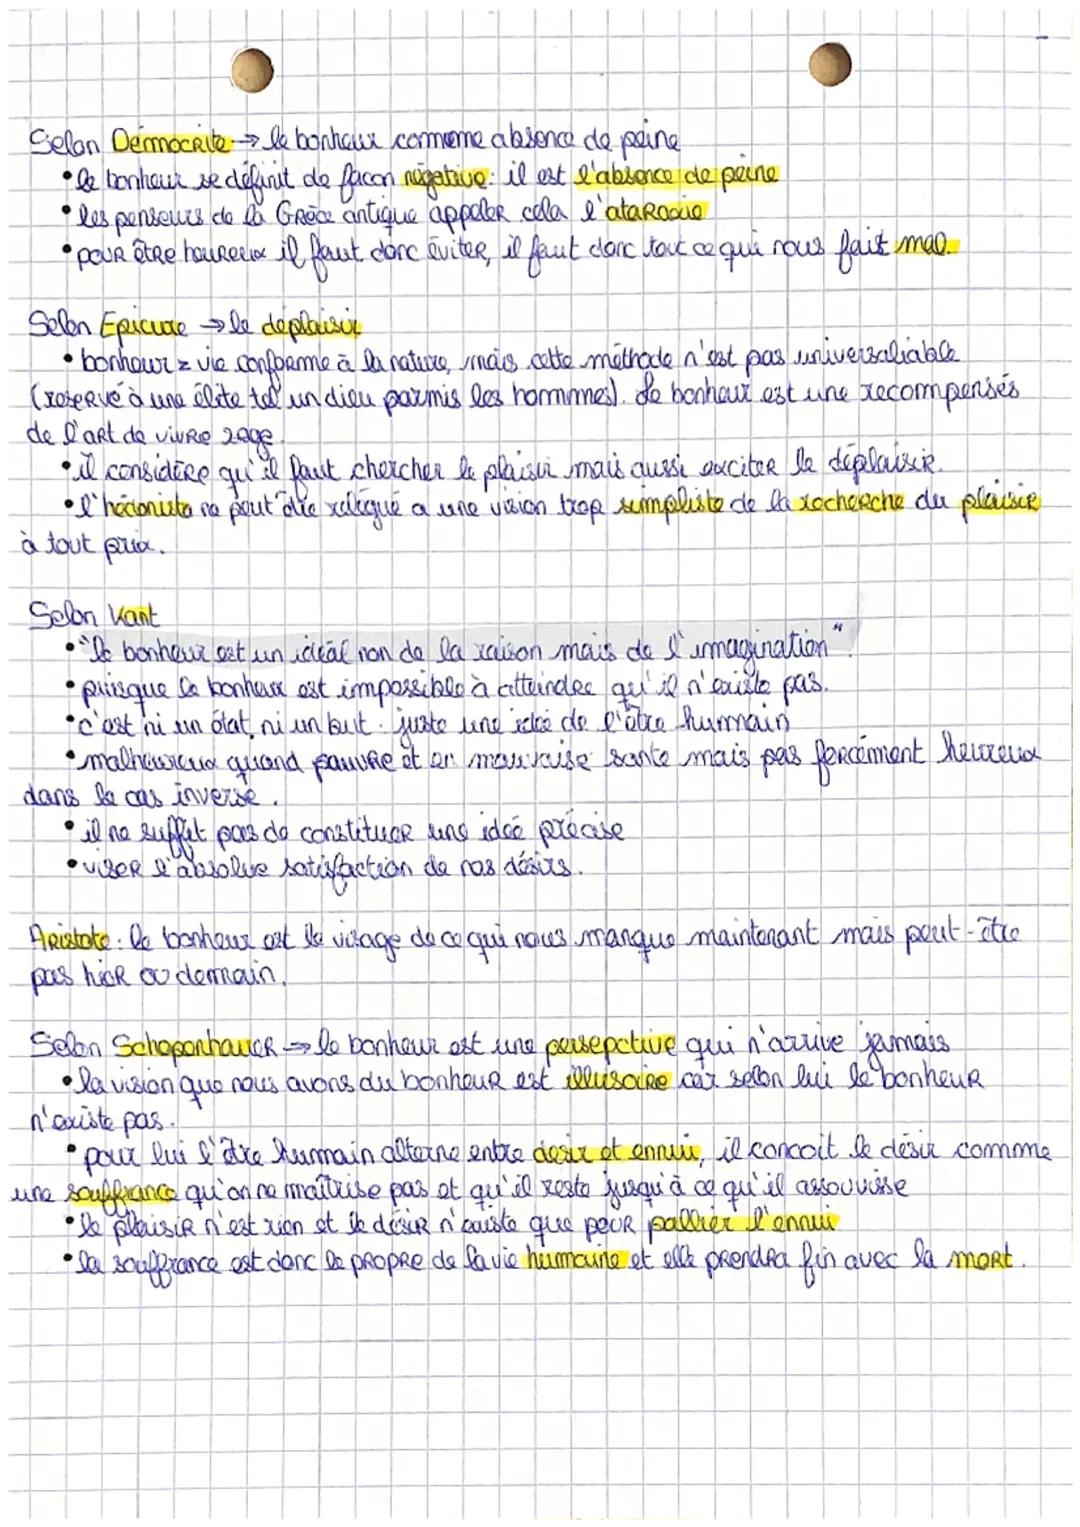 Selon Démocrite → le bonheur commeme absence de peine
• le bonheur se définit de facon négative: il est l'absence de peine
• les penseurs de la Grèce antique appeler cela l'ataraxie
• pour être heureux il faut donc éviter, il faut donc tout ce qui nous fait mal.
Selon Epicure → le déplaisir
• bonheur = vie conforme à la nature, mais cette méthode n'est pas universaliable
(reservé à une élite tel un dieu parmis les hommes). Le bonheur est une recompensés
de l'art de vivre sage.
• il considère qu'il faut chercher le plaisir mais aussi exciter le déplaisir.
• l'hédoniste ne peut être relégué a une vision trop simpliste de la recherche du plaisir
à tout prix.
Selon Kant
• "le bonheur est un idéal non de la raison mais de l'imagination".
• puisque le bonheur est impossible à atteindre qu'il n'existe pas.
• c'est ni un état, ni un but : juste une idée de l'être humain
• malheureux quand pauvre et en mauvaise santé mais pas forcément heureux
dans le cas inverse.
• il ne suffit pas de constituer une idée précise
• viser l'absolue satisfaction de nos désirs.
Aristote : le bonheur est le visage de ce qui nous manque maintenant mais peut-être
pas hier ou demain.
Selon Schopenhauer → le bonheur est une persepctive qui n'arrive jamais
• la vision que nous avons du bonheur est illusoire car selon lui le bonheur
n'existe pas.
• pour lui l'être humain alterne entre desir et ennui, il concoit le désir comme
une souffrance qu'on ne maîtrise pas et qu'il reste jusqu'à ce qu'il assouvisse
• le plaisir n'est rien et le désir n'existe que pour pallier l'ennui
• la souffrance est donc le propre de la vie humaine et elle prendra fin avec la mort.